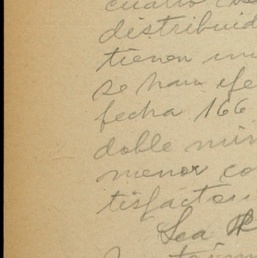 cuatro
distribuid
tienen un
se han efe
fecha 166
doble min
menor co
tisfactor
Sea